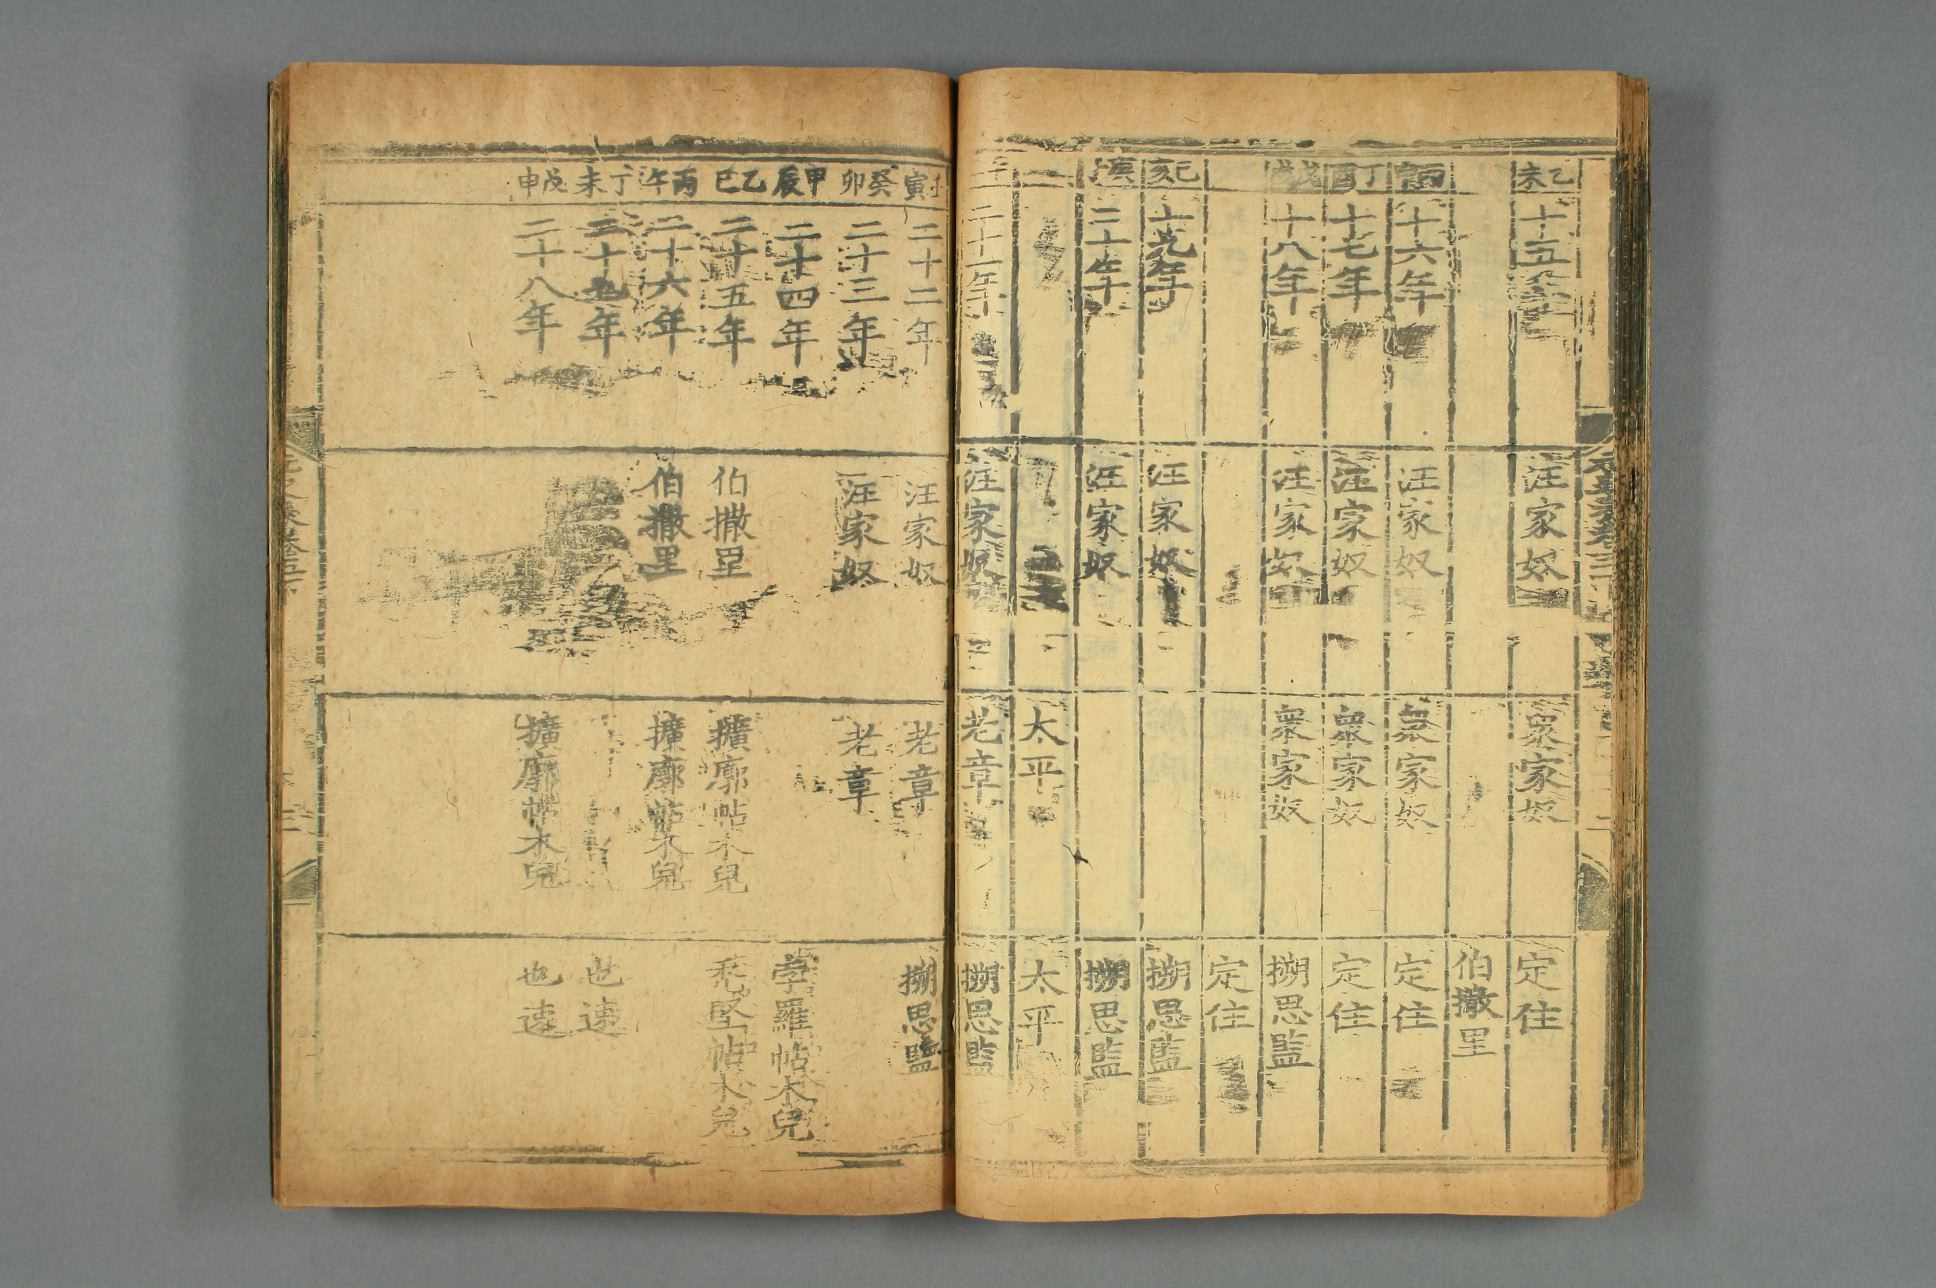 乙未
十五年
汪家奴
衆家奴
定住
伯撒里
丙申
十六年
汪家奴
衆家奴
定住
丁酉
十七年
汪家奴
衆家奴
定住
戊戌
十八年
汪家奴
衆家奴
搠思監
定住
己亥
十九年
汪家奴
搠思監
二十年
汪家奴
搠思監
太平
太平
二十一年
汪家奴
老章
搠思監
寅
二十二年
汪家奴
老章
搠思監
癸卯
二十三年
汪家奴
老章
甲辰
二十四年
孛羅帖木兒
乙巳
二十五年
伯撒里
擴廓帖木兒
禿堅帖木兒
丙午
二十六年
伯撒里
擴廓帖木兒
丁未
二十七年
也速
戊申
二十八年
擴廓帖木兒
也速